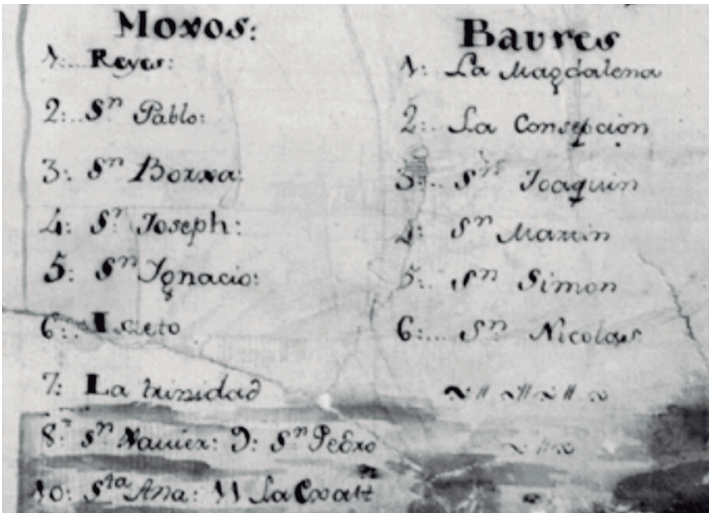 Moxos:
1:.. Reyes:
2:.. Sn Pablo:
3:. Sn Borxa:
4: Sn Joseph:
5: Sn Ignacio:
6:. Loreto
7: La trinidad
8: Sn Xavier: 9: Sn Pedro
10: Sta Ana: 11 La Cruz
Baures
1: La Magdalena
2:. La Consepcion
3:.. Sn Joaquin
4: Sn Martin
5:. Sn Simon
6:... Sn Nicolas